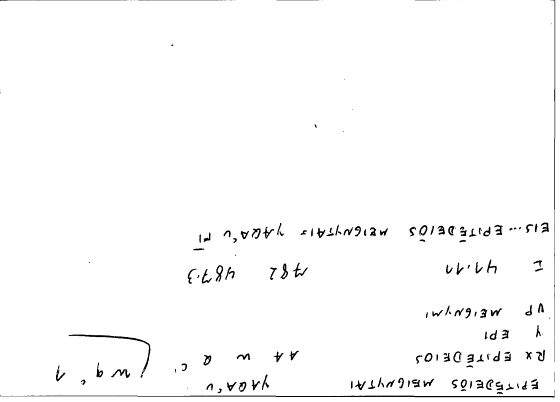 EPITĒDEIOS MEIGNYTAI YAQA'U
RX EPITĒDEIOS A A W Q C'
wq'1
Y EPI
VP MEIGNYMI
I 41.11 782 487.3
EIS... EPITĒDEIŌS MEIGNYTAI= YAQA'U MI